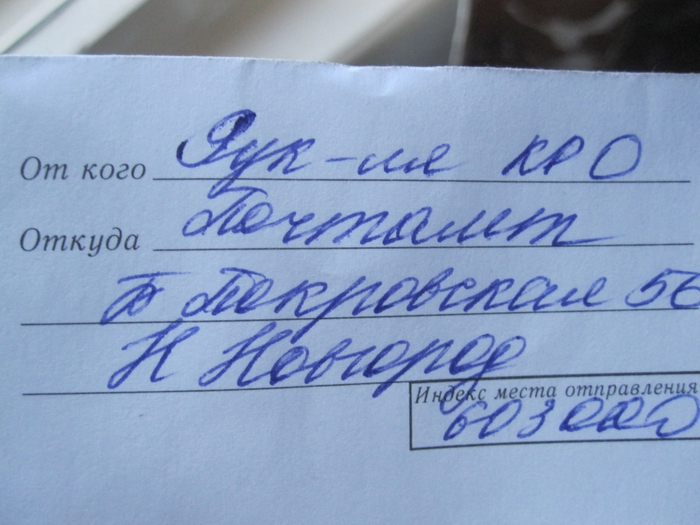 От кого Рук-ля КРО
Откуда Почтамт
Б Покровская 56
Н Новгород
Индекс места отправления
603000